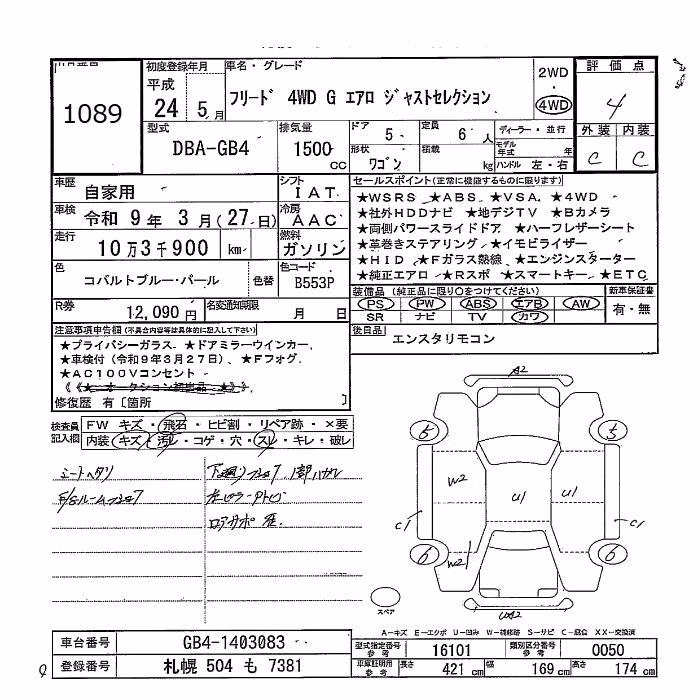 1089
初度登録年月
平成
24 5 月
車名・グレード
フリード 4WD G エアロ ジャストセレクション
2WD
4WD
評価点
4
外装 内装
C C
型式
DBA-GB4
排気量
1500 CC
ドア 5
定員 6 人
形状 ワゴン
積載 kg
ディーラー・並行
モデル年式 年
ハンドル 左・右
車歴 自家用
シフト IAT
車検 令和 9年 3月(27日)
冷房 AAC
走行 10万3千900 km
燃料 ガソリン
色 コバルトブルー・パール 色替
色コード B553P
R券 12,090円
名変通知期限 月 日
セールスポイント(正常に機能するものに限ります)
★WSRS ★ABS ★VSA ★4WD
★社外HDDナビ ★地デジTV ★Bカメラ
★両側パワースライドドア ★ハーフレザーシート
★革巻きステアリング ★イモビライザー
★HID ★Fガラス熱線 ★エンジンスターター
★純正エアロ ★Rスポ ★スマートキー ★ETC
装備品(純正品に限り○をつけてください)
新車保証書
PS PW ABS エアB AW
SR ナビ TV カワ
有・無
後日品
エンスタリモコン
注意事項申告欄(不具合内容等は具体的に記入して下さい)
★プライバシーガラス ★ドアミラーウインカー
★車検付(令和9年3月27日) ★Fフォグ
★AC100Vコンセント
修復歴 有〔箇所 〕
検査員記入欄
FW キズ・飛石・ヒビ割・リペア跡・×要
内装 キズ・汚レ・コゲ・穴・スレ・キレ・破レ
シートヘタリ
A2
5 5
W2
U1 U1
C1 C1
W2
6 6
スペア
A-キズ E-エクボ U-凹み W-補修跡 S-サビ C-腐食 XX-交換済
車台番号 GB4-1403083
登録番号 札幌 504 も 7381
型式指定番号 参考 16101
類別区分番号 参考 0050
車庫証明用 参考
長さ 421 cm 幅 169 cm 高さ 174 cm